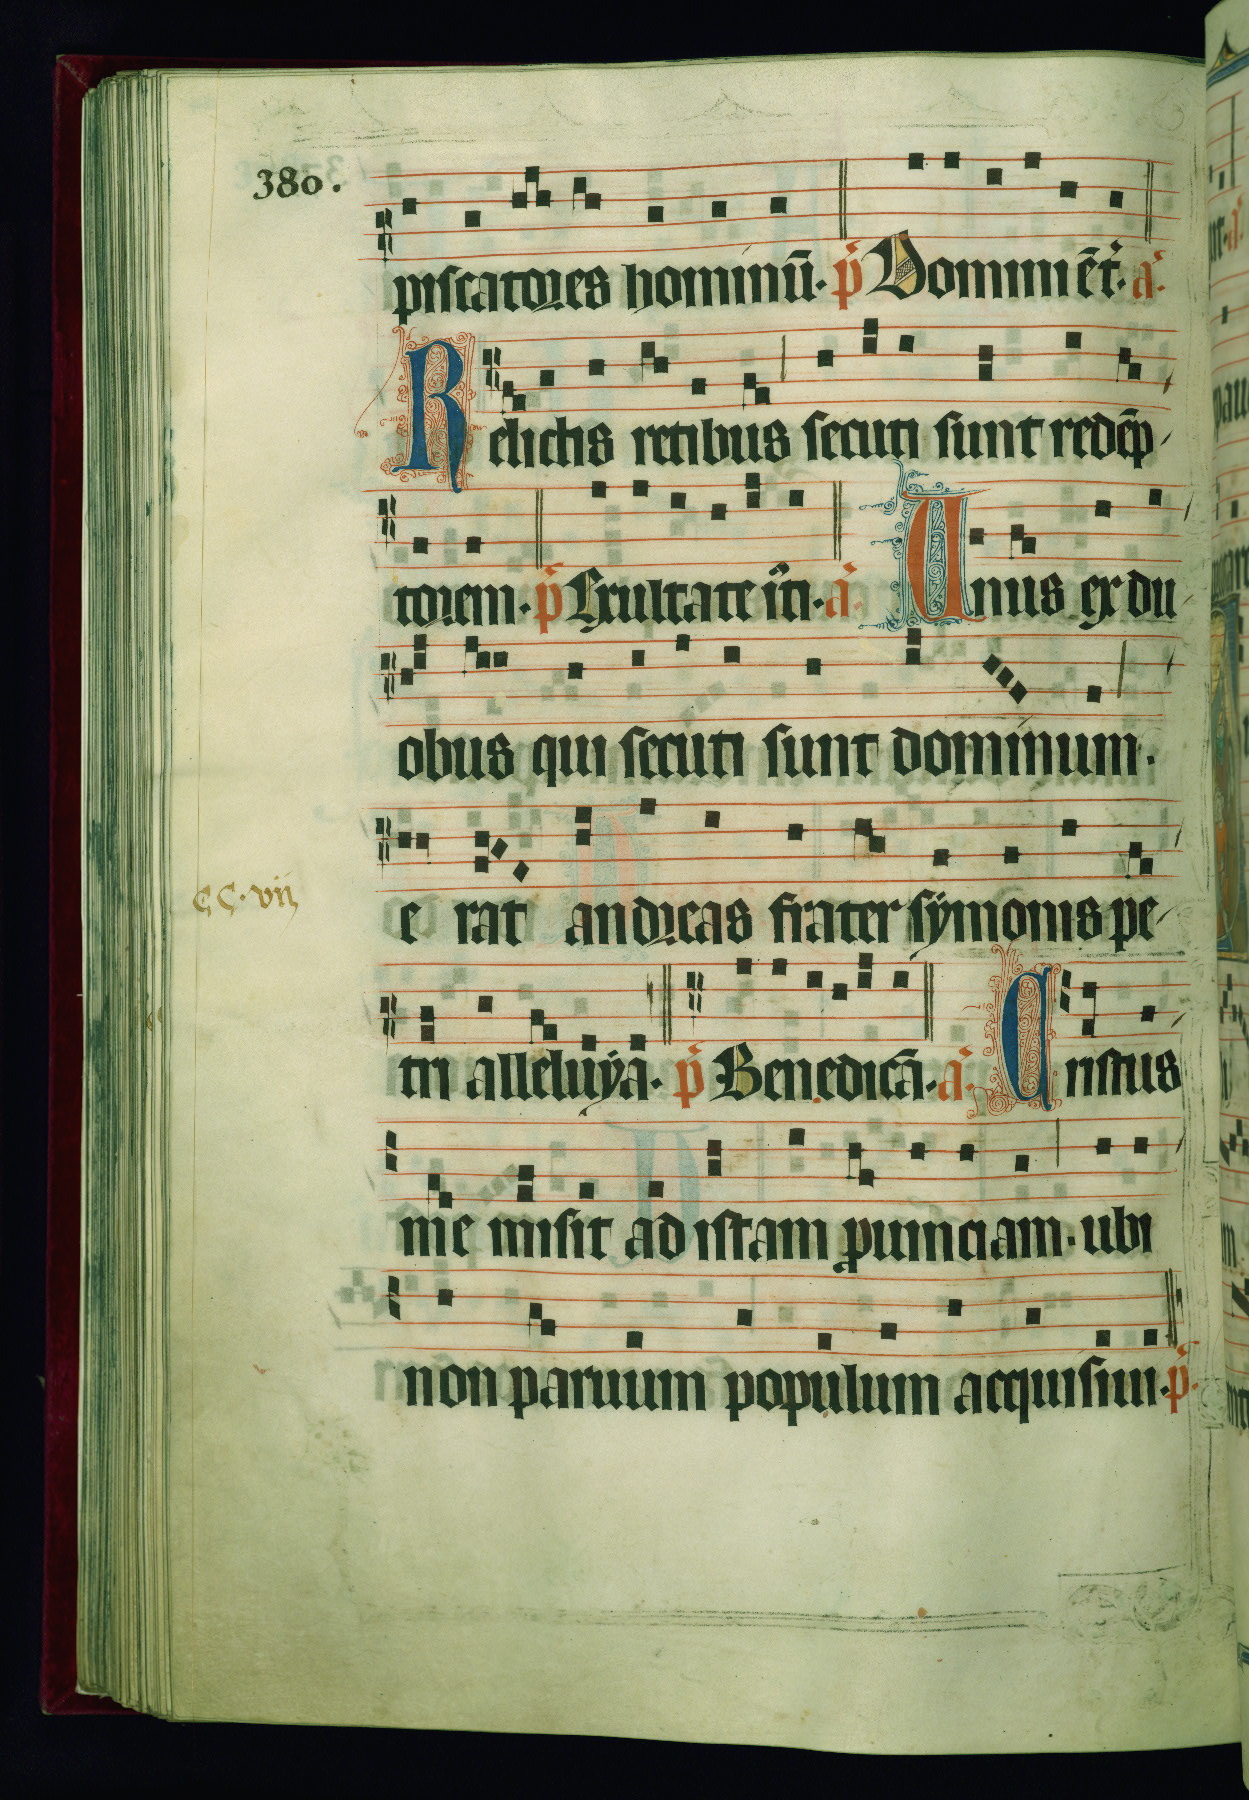 380.
piscatores hominū. p̄ Domini ēt. a.
Relictis retibus secuti sunt redēp
torem. p̄ Exultate iti. a. Unus ex du
obus qui secuti sunt dominum.
CC.vii
e rat andreas frater sÿmonis pe
tri alleluÿa. p̄ Benedicā. a. Cristus
me misit ad istam ꝓuinciam. ubi
non paruum populum acquisiui. p̄.